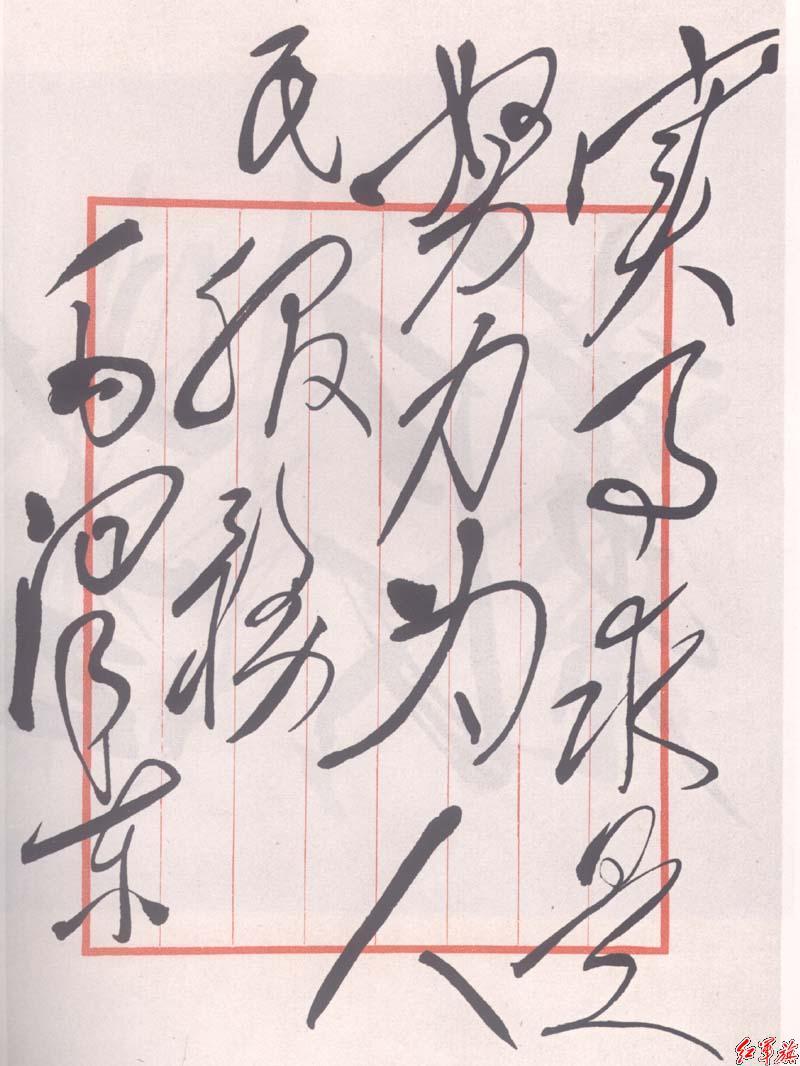 实事求是
努力为人
民
服务
毛泽东
红军旗